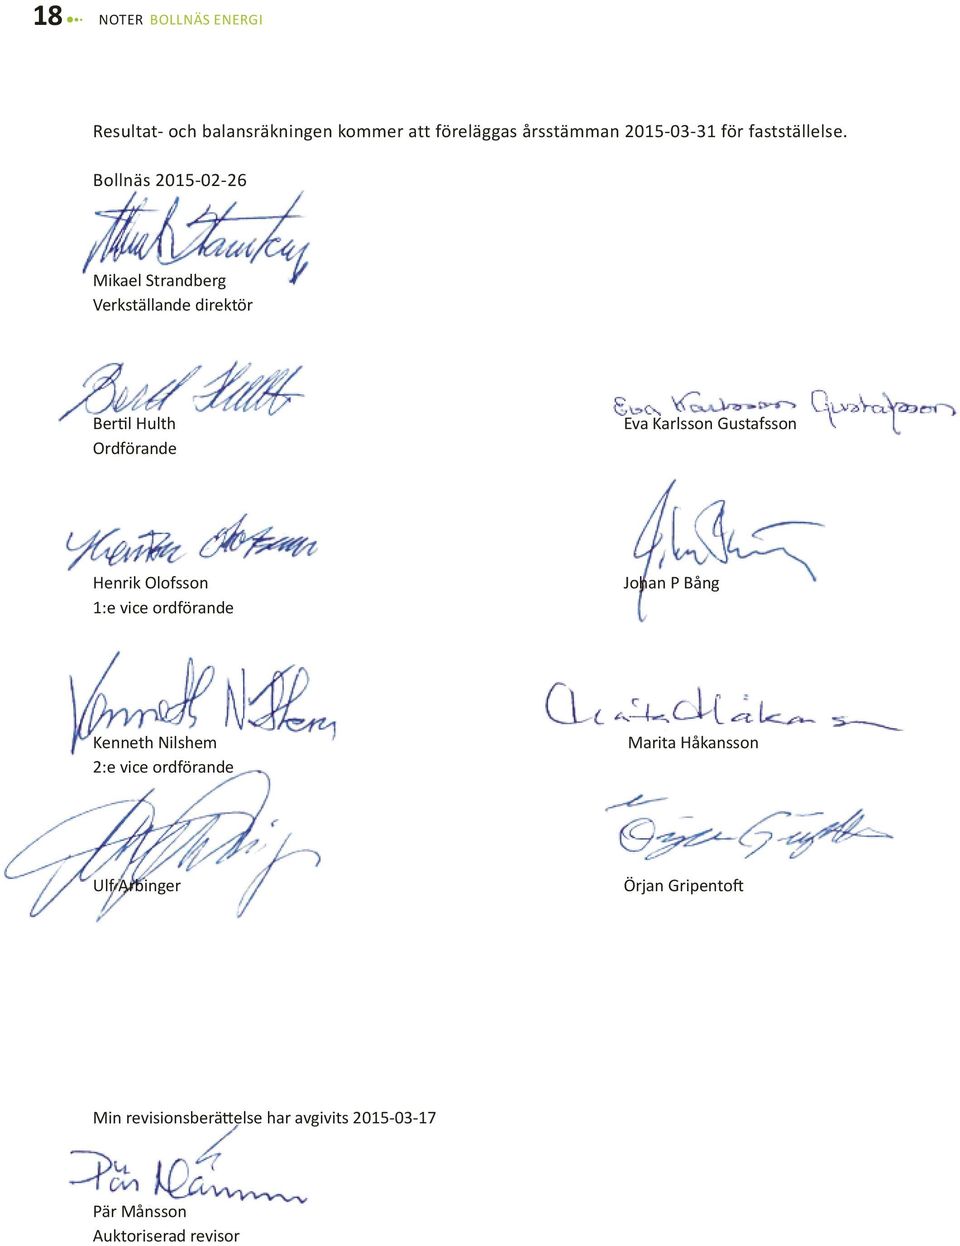 18 NOTER BOLLNÄS ENERGI
Resultat- och balansräkningen kommer att föreläggas årsstämman 2015-03-31 för fastställelse.
Bollnäs 2015-02-26
Mikael Strandberg
Verkställande direktör
Bertil Hulth
Ordförande
Eva Karlsson Gustafsson
Eva Karlsson Gustafsson
Henrik Olofsson
1:e vice ordförande
Johan P Bång
Kenneth Nilshem
Kenneth Nilshem
2:e vice ordförande
Marita Håkansson
Ulf Arbinger
Örjan Gripentoft
Min revisionsberättelse har avgivits 2015-03-17
Pär Månsson
Pär Månsson
Auktoriserad revisor